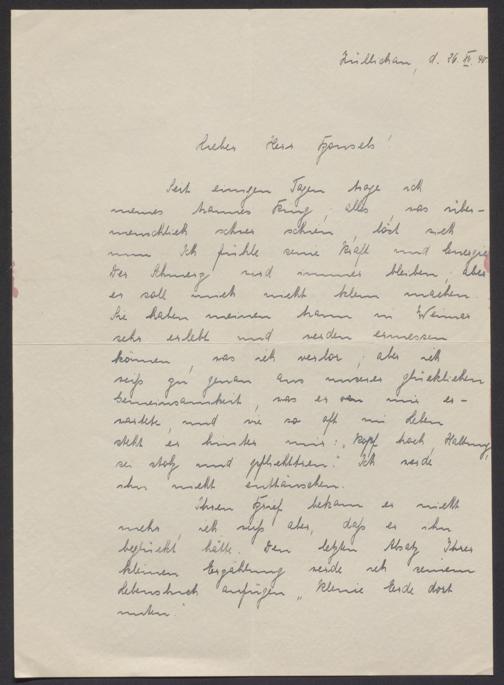 Züllichau, d. 26. XI. 40.
Lieber Herr
Seit einigen Tagen trage ich
meines Mannes Ring, alles, was über-
menschlich schwer schien, löst sich
nun. Ich fühle seine Kraft und Energie
Der Schmerz wird immer bleiben, aber
er soll mich nicht klein machen.
Sie haben meinen Mann in Weimar
sehr erlebt und werden ermessen
können, was ich verlor, aber ich
weiß zu genau aus unserer glücklichen
Gemeinsamkeit, was er von mir er-
wartete, und wie so oft im Leben
steht er hinter mir: „Kopf hoch, Haltung,
sei stolz und." Ich werde
ihn nicht enttäuschen.
Ihren Brief bekam er nicht
mehr, ich weiß aber, daß er ihn
beglückt hätte. Den letzten Absatz Ihrer
kleinen Erzählung werde ich seinem
Lebensbuch anfügen „Kleine Erde dort
unten."